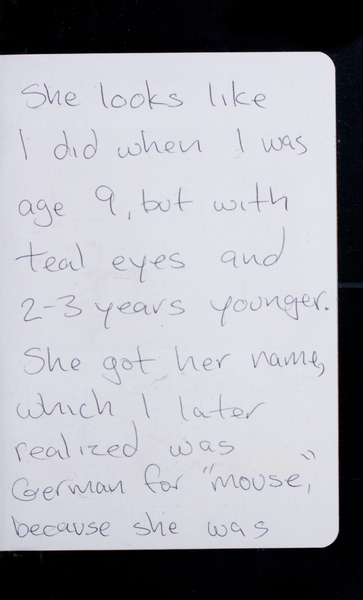 She looks like
I did when I was
age 9, but with
teal eyes and
2-3 years younger.
She got her name,
which I later
realized was
German for "mouse,"
because she was